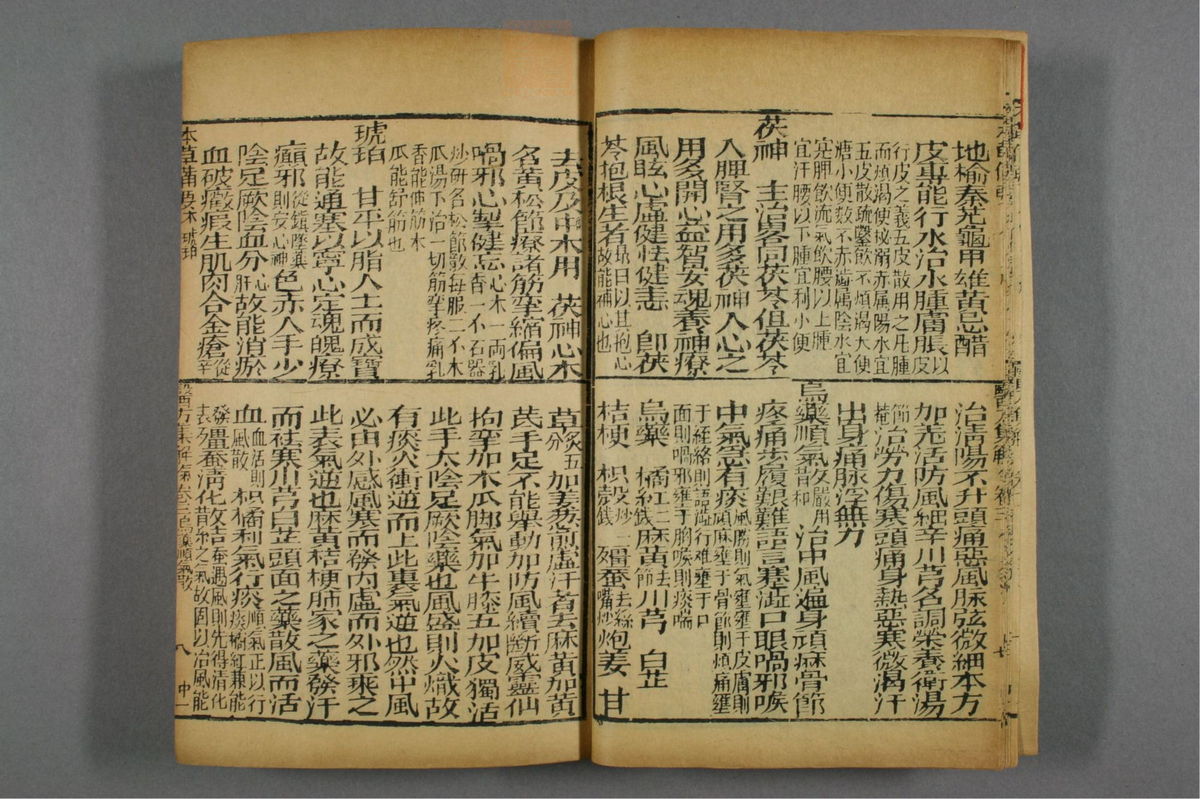 地榆秦艽龜甲雄黃忌醋
皮專能行水治水腫膚脹以皮
行皮之義五皮散用之凡腫
而煩渴便秘溺赤屬陽水宜
五皮散疏鑿飲不煩渴大便
溏小便數不赤澁屬陰水宜
實脾飲流氣飲腰以上腫
宜汗腰以下腫宜利小便
茯神 主治畧同茯苓但茯苓
入脾腎之用多茯神入心之
用多開心益智安魂養神療
風眩心虛健怯健恚 卽茯
苓抱根生者昂曰以其抱心故能補心也
治清陽不升頭痛惡風脉弦微細本方
加羌活防風細辛川芎名調榮養衛湯
節菴治勞力傷寒頭痛身熱惡寒微渴汗
出身痛脉浮無力
烏藥順氣散嚴用和 治中風遍身頑麻骨節
疼痛步履艱難語言蹇澁口眼喎邪喉
中氣急有痰風勝則氣壅壅于皮膚則頑麻壅于骨節則煩痛壅
于經絡則語澁行难壅于口
面則喎邪壅于胸喉則痰喘
烏藥 橘紅二錢麻黃去節川芎 白芷
桔梗 枳殼炒一錢殭蚕去絲嘴炒炮姜 甘
去皮及中木用 茯神心木
名黃松節療諸筋攣縮偏風
喎邪心掣健忘心木一兩乳香一不石器
炒研名松節散每服二不木
瓜湯下治一切筋攣疼痛乳
香能伸筋木
瓜能舒筋也
琥珀 甘平以脂入土而成寶
故能通塞以寧心定魂魄療
癲邪從鎮墜藥則安心神色赤入手少
陰足厥陰血分心肝故能消瘀
血破癥瘕生肌肉合金瘡從辛
本草備要木 琥珀
草炙五分 加姜葱煎虛汗者去麻黃加黃
芪手足不能舉動加防風續斷威靈仙
拘攣加木瓜脚氣加牛膝五加皮獨活
此手太陰足厥陰藥也風盛則火熾故
有痰火衝逆而上此裏氣逆也然中風
必由外感風寒而發內虛而外邪乘之
此表氣逆也麻黃桔梗肺家之藥發汗
而祛寒川芎白芷頭面之藥散風而活
血血活則風散枳橘利氣行痰順氣正以行痰橘紅兼能
發表殭蚕清化
醫方集解卷二烏藥順氣散 八 中一